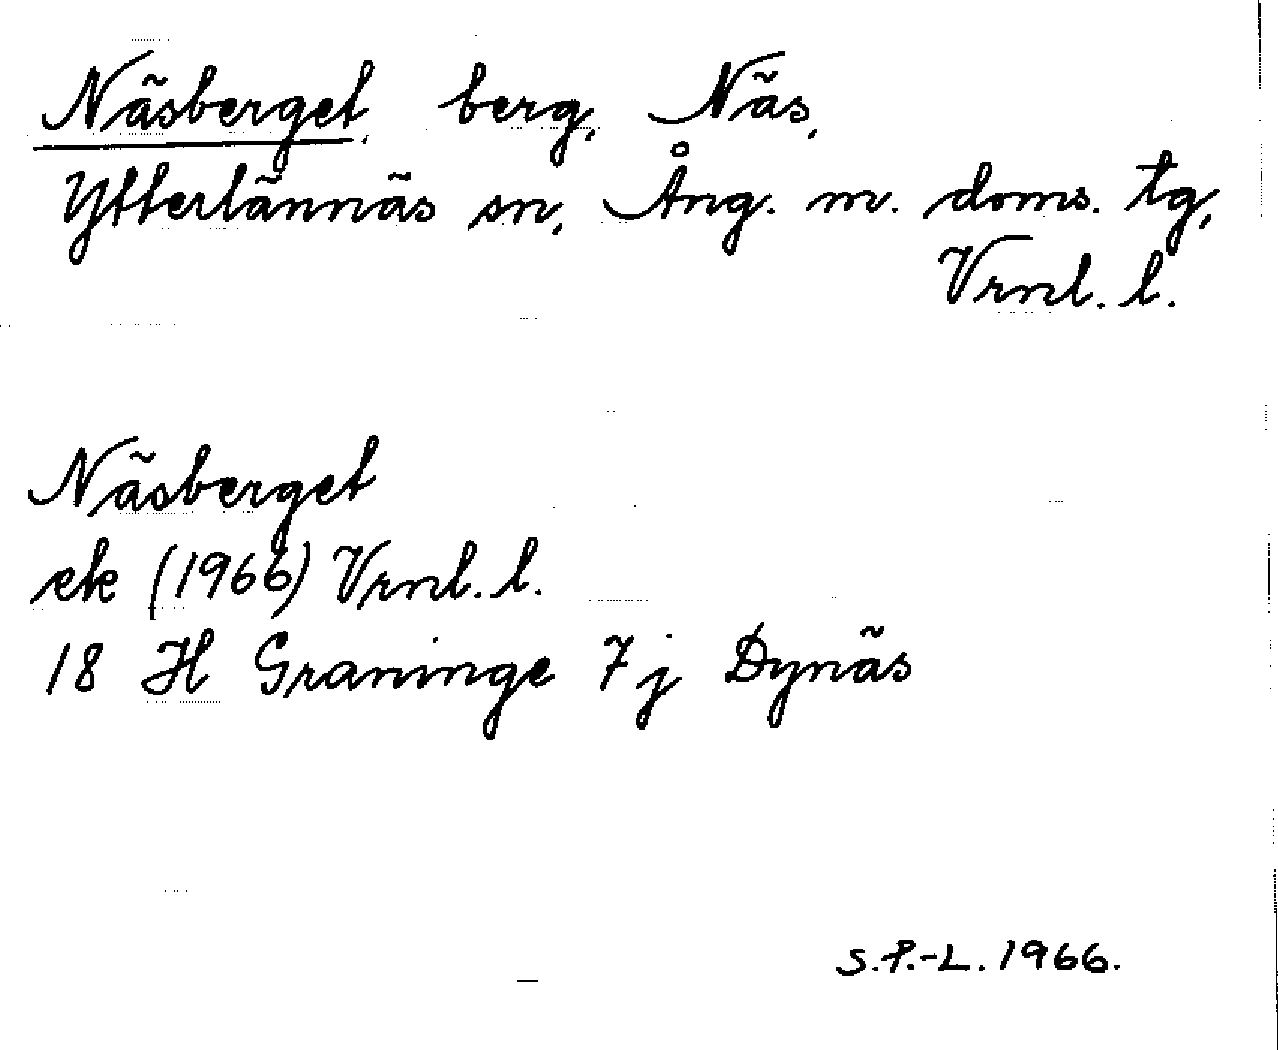 Näsberget, berg, Näs,
Ytterlännäs sn, Ång. m. doms. tg,
Vrnl. l.
Näsberget
ek (1966) Vrnl. l.
18 H Graninge 7j Dynäs
S.P.-L. 1966.